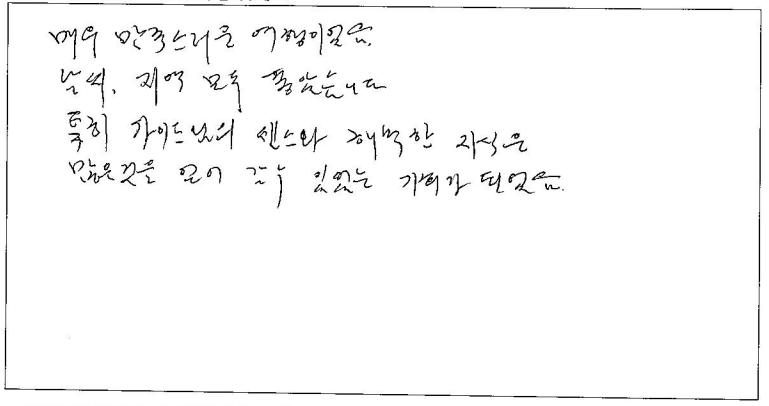 매우 만족스러운 여행이었음.
날씨, 지역 모두 좋았습니다
특히 가이드님의 센스와 해박한 지식은
많은것을 얻어 갈수 있었는 기회가 되었음.